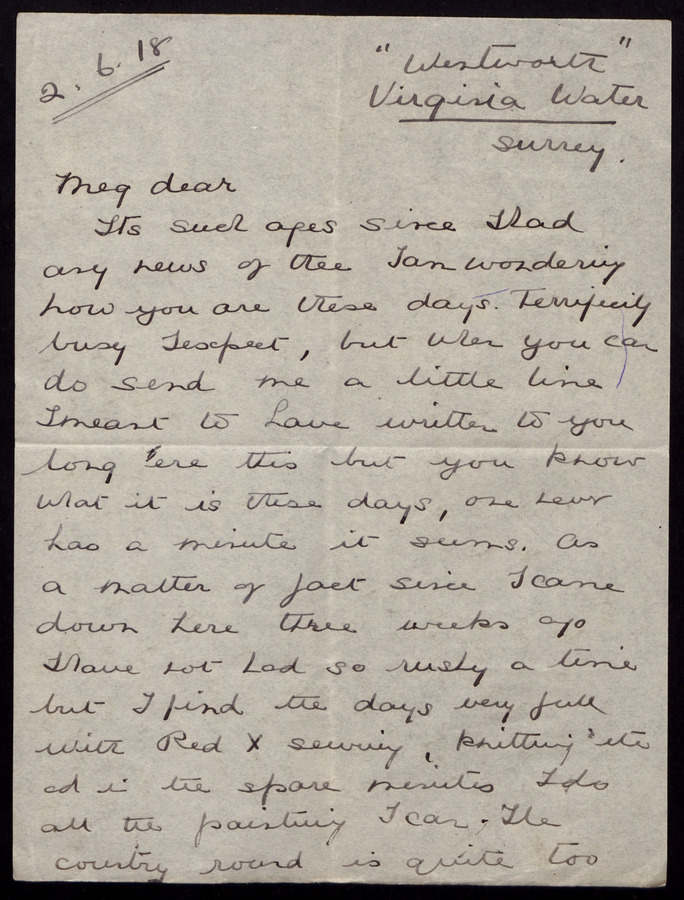 2.6.18
"Wentworth"
Virginia Water
Surrey.
Meg dear
Its such ages since I had
any news of thee I am wondering
how you are these days. Terrificily
busy I expect, but when you can
do send me a little line
I meant to have written to you
long 'ere this but you know
what it is these days, one never
has a minute it seems. As
a matter of fact since I came
down here three weeks ago
I have not had so rushy a time
but I find the days very full
with Red X sewing, knitting etc
ad in the spare minutes I do
all the painting I can. The
country round is quite too